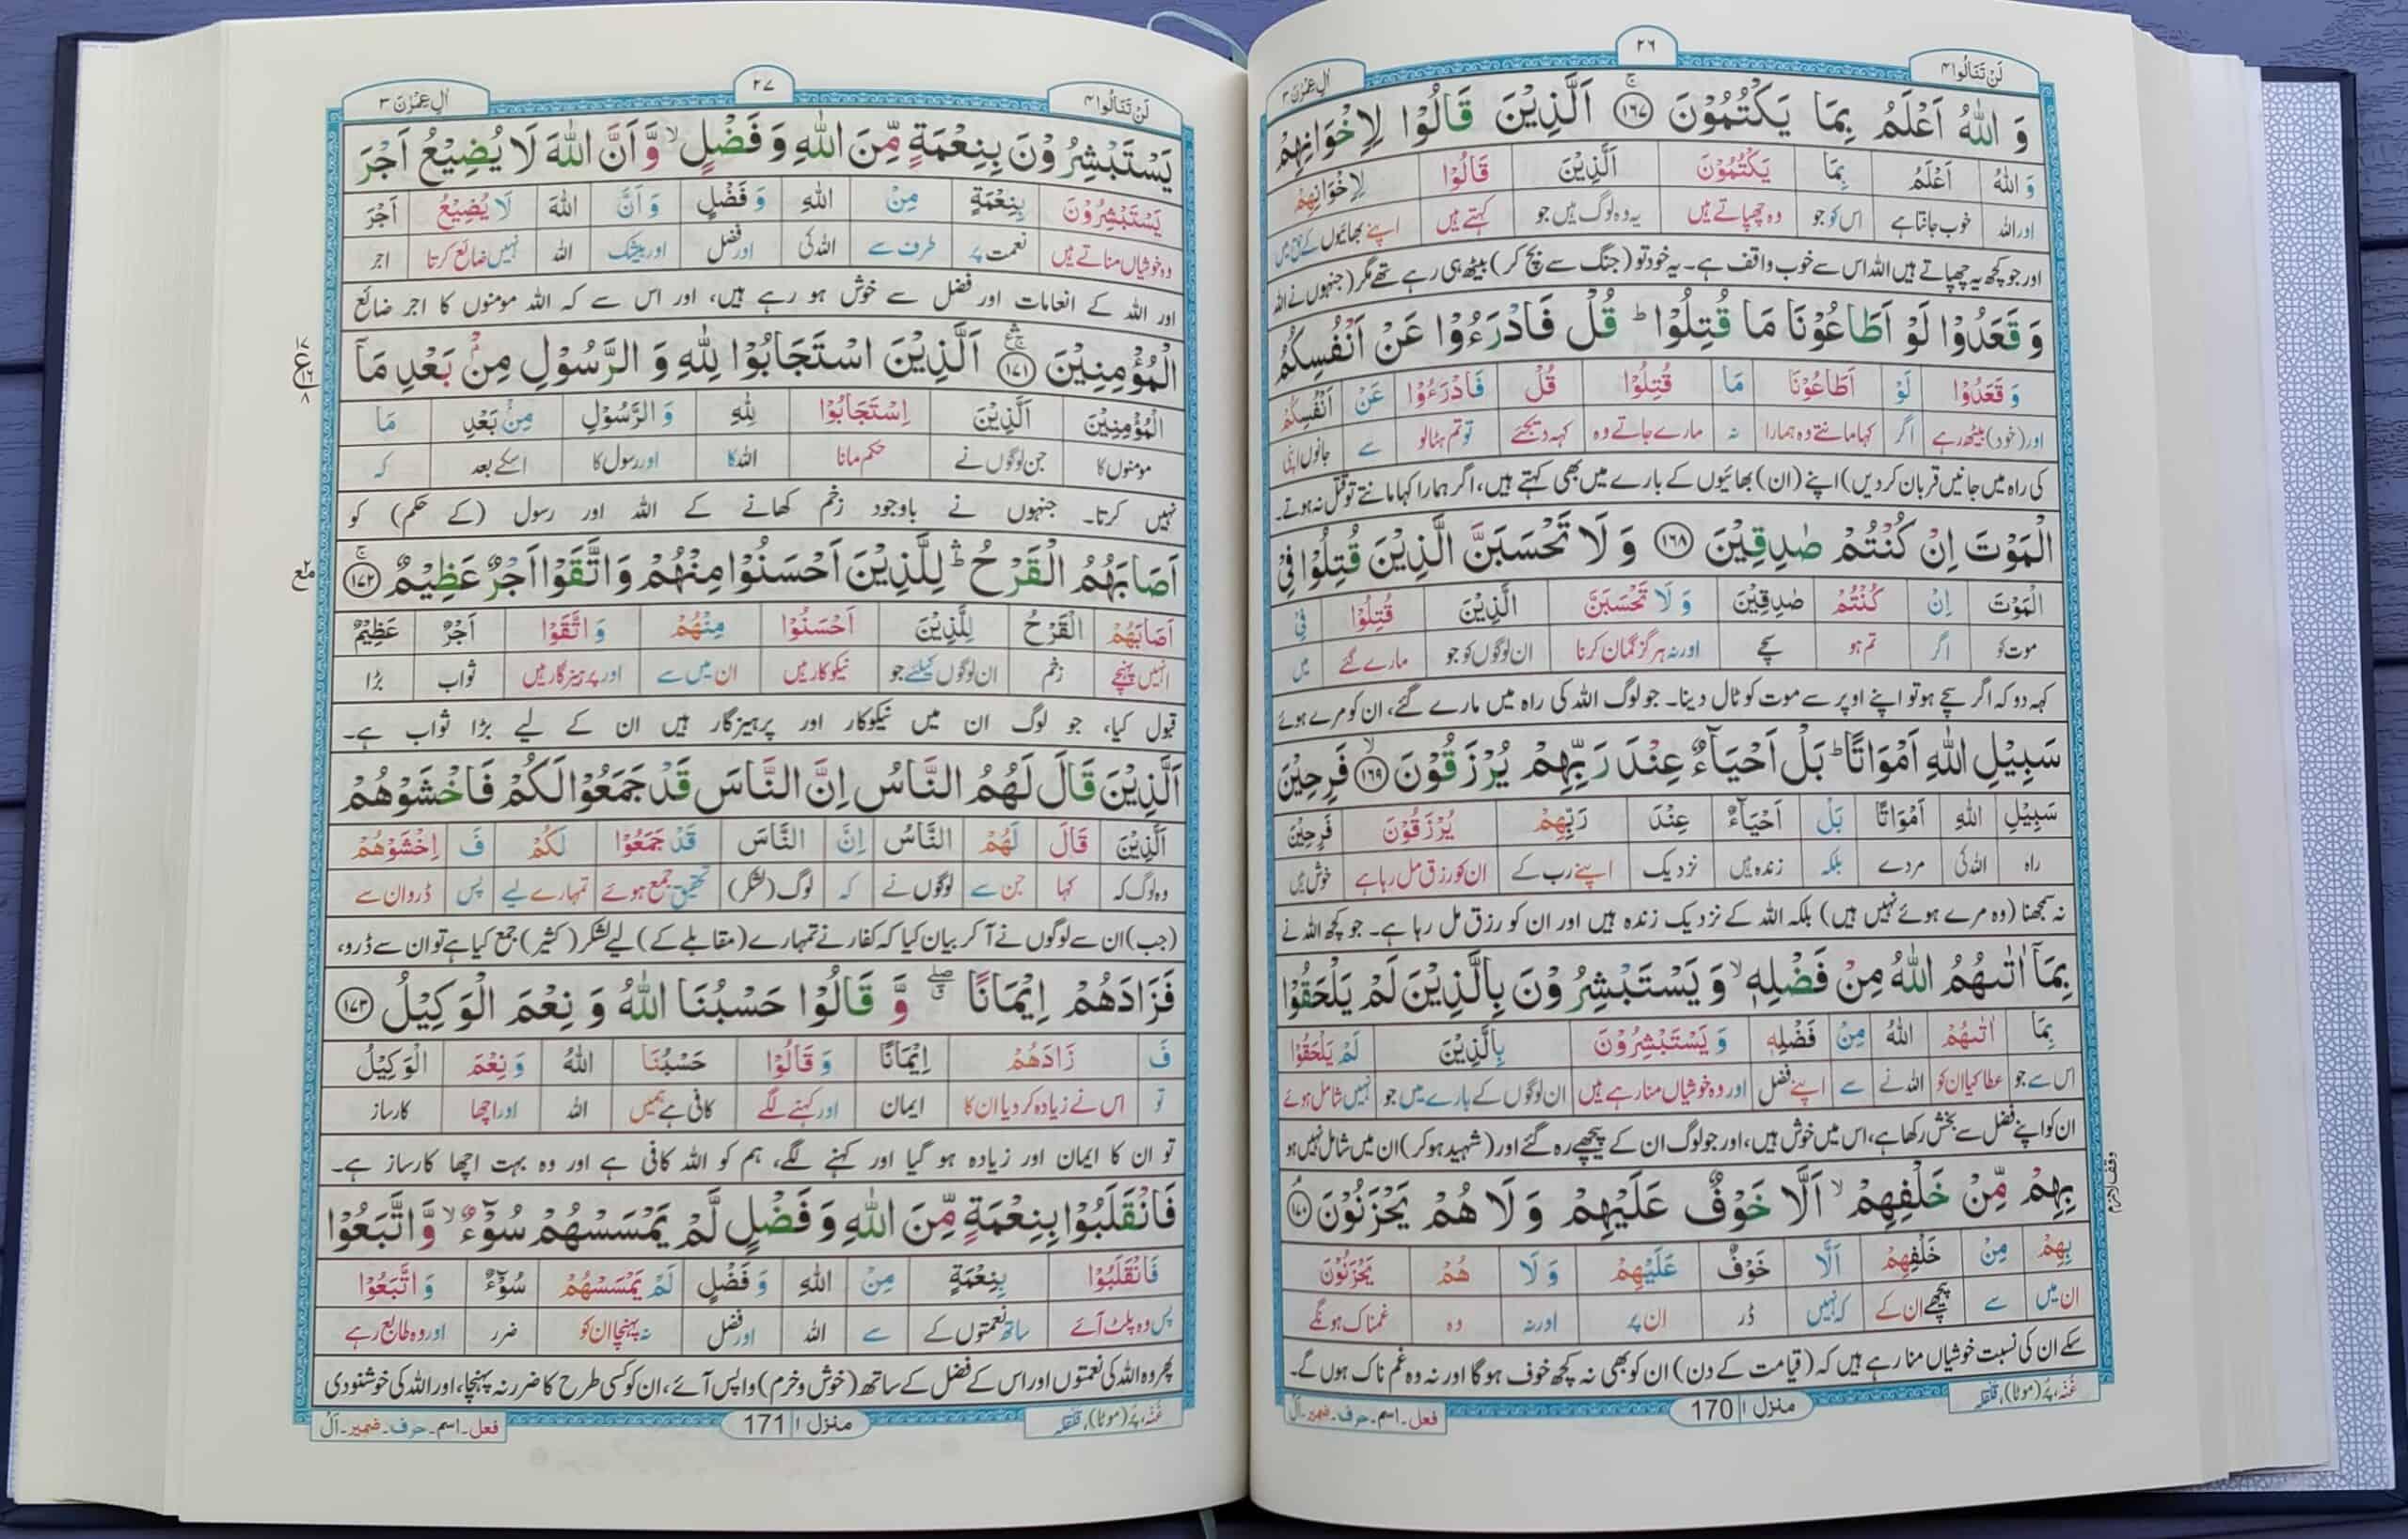 لَنْ تَنَالُوا ۴
۲۶
اٰلِ عِمْرٰنَ ۳
وَ اللّٰهُ اَعْلَمُ بِمَا يَكْتُمُوْنَ ۝۱۶۷ۚ اَلَّذِيْنَ قَالُوْا لِاِخْوَانِهِمْ
وَ اللّٰهُ اَعْلَمُ بِمَا يَكْتُمُوْنَ اَلَّذِيْنَ قَالُوْا لِاِخْوَانِهِمْ
اور اللہ خوب جانتا ہے اس کو جو وہ چھپاتے ہیں یہ وہ لوگ ہیں جو کہتے ہیں اپنے بھائیوں کے حق میں
اور جو کچھ یہ چھپاتے ہیں اللہ اس سے خوب واقف ہے۔ یہ خود تو (جنگ سے بچ کر) بیٹھ ہی رہے تھے مگر (جنہوں نے اللہ
وَ قَعَدُوْا لَوْ اَطَاعُوْنَا مَا قُتِلُوْا ؕ قُلْ فَادْرَءُوْا عَنْ اَنْفُسِكُمُ
وَ قَعَدُوْا لَوْ اَطَاعُوْنَا مَا قُتِلُوْا قُلْ فَادْرَءُوْا عَنْ اَنْفُسِكُمُ
اور (خود) بیٹھ رہے اگر کہا مانتے وہ ہمارا نہ مارے جاتے وہ کہہ دیجئے تو تم ہٹا لو سے جانوں اپنی
کی راہ میں جانیں قربان کر دیں) اپنے (ان) بھائیوں کے بارے میں بھی کہتے ہیں، اگر ہمارا کہا مانتے تو قتل نہ ہوتے۔
الْمَوْتَ اِنْ كُنْتُمْ صٰدِقِيْنَ ۝۱۶۸ وَ لَا تَحْسَبَنَّ الَّذِيْنَ قُتِلُوْا فِيْ
الْمَوْتَ اِنْ كُنْتُمْ صٰدِقِيْنَ وَ لَا تَحْسَبَنَّ الَّذِيْنَ قُتِلُوْا فِيْ
موت کو اگر تم ہو سچے اور نہ ہر گز گمان کرنا ان لوگوں کو جو مارے گئے میں
کہہ دو کہ اگر سچے ہو تو اپنے اوپر سے موت کو ٹال دینا۔ جو لوگ اللہ کی راہ میں مارے گئے، ان کو مرے ہوئے
سَبِيْلِ اللّٰهِ اَمْوَاتًا ؕ بَلْ اَحْيَآءٌ عِنْدَ رَبِّهِمْ يُرْزَقُوْنَ ۝۱۶۹ۙ فَرِحِيْنَ
سَبِيْلِ اللّٰهِ اَمْوَاتًا بَلْ اَحْيَآءٌ عِنْدَ رَبِّهِمْ يُرْزَقُوْنَ فَرِحِيْنَ
راہ اللہ کی مردے بلکہ زندہ ہیں نزدیک اپنے رب کے ان کو رزق مل رہا ہے خوش ہیں
نہ سمجھنا (وہ مرے ہوئے نہیں ہیں) بلکہ اللہ کے نزدیک زندہ ہیں اور ان کو رزق مل رہا ہے۔ جو کچھ اللہ نے
بِمَاۤ اٰتٰىهُمُ اللّٰهُ مِنْ فَضْلِهٖ ۙ وَ يَسْتَبْشِرُوْنَ بِالَّذِيْنَ لَمْ يَلْحَقُوْا
بِمَا اٰتٰىهُمُ اللّٰهُ مِنْ فَضْلِهٖ وَ يَسْتَبْشِرُوْنَ بِالَّذِيْنَ لَمْ يَلْحَقُوْا
اس سے جو عطا کیا ان کو اللہ نے سے اپنے فضل اور وہ خوشیاں منا رہے ہیں ان لوگوں کے بارے میں جو نہیں شامل ہوئے
ان کو اپنے فضل سے بخش رکھا ہے، اس میں خوش ہیں، اور جو لوگ ان کے پیچھے رہ گئے اور (شہید ہو کر) ان میں شامل نہیں ہو
بِهِمْ مِّنْ خَلْفِهِمْ ۙ اَلَّا خَوْفٌ عَلَيْهِمْ وَ لَا هُمْ يَحْزَنُوْنَ ۝۱۷۰ۘ
بِهِمْ مِنْ خَلْفِهِمْ اَلَّا خَوْفٌ عَلَيْهِمْ وَ لَا هُمْ يَحْزَنُوْنَ
ان میں سے پیچھے ان کے کہ نہیں ڈر ان پر اور نہ وہ غمناک ہونگے
سکے ان کی نسبت خوشیاں منا رہے ہیں کہ (قیامت کے دن) ان کو بھی نہ کچھ خوف ہو گا اور نہ وہ غم ناک ہوں گے۔
غُنّہ، پُر (موٹا)، قلقلہ
منزل ۱ 170
فعل۔ اسم۔ حرف۔ ضمیر۔ اَلْ
لَنْ تَنَالُوا ۴
۲۷
اٰلِ عِمْرٰنَ ۳
يَسْتَبْشِرُوْنَ بِنِعْمَةٍ مِّنَ اللّٰهِ وَ فَضْلٍ ۙ وَّ اَنَّ اللّٰهَ لَا يُضِيْعُ اَجْرَ
يَسْتَبْشِرُوْنَ بِنِعْمَةٍ مِنْ اللّٰهِ وَ فَضْلٍ وَ اَنَّ اللّٰهَ لَا يُضِيْعُ اَجْرَ
وہ خوشیاں مناتے ہیں نعمت پر طرف سے اللہ کی اور فضل اور بیشک اللہ نہیں ضائع کرتا اجر
اور اللہ کے انعامات اور فضل سے خوش ہو رہے ہیں، اور اس سے کہ اللہ مومنوں کا اجر ضائع
الْمُؤْمِنِيْنَ ۝۱۷۱ اَلَّذِيْنَ اسْتَجَابُوْا لِلّٰهِ وَ الرَّسُوْلِ مِنْۢ بَعْدِ مَاۤ
الْمُؤْمِنِيْنَ اَلَّذِيْنَ اِسْتَجَابُوْا لِلّٰهِ وَ الرَّسُوْلِ مِنْۢ بَعْدِ مَا
مومنوں کا جن لوگوں نے حکم مانا اللہ کا اور رسول کا اسکے بعد کہ
نہیں کرتا۔ جنہوں نے باوجود زخم کھانے کے اللہ اور رسول (کے حکم) کو
اَصَابَهُمُ الْقَرْحُ ؕ لِلَّذِيْنَ اَحْسَنُوْا مِنْهُمْ وَ اتَّقَوْا اَجْرٌ عَظِيْمٌ ۝۱۷۲ۚ
اَصَابَهُمُ الْقَرْحُ لِلَّذِيْنَ اَحْسَنُوْا مِنْهُمْ وَ اتَّقَوْا اَجْرٌ عَظِيْمٌ
انہیں پہنچے زخم ان لوگوں کیلئے جو نیکوکار ہیں ان میں سے اور پرہیزگار ہیں ثواب بڑا
قبول کیا، جو لوگ ان میں نیکوکار اور پرہیزگار ہیں ان کے لیے بڑا ثواب ہے۔
اَلَّذِيْنَ قَالَ لَهُمُ النَّاسُ اِنَّ النَّاسَ قَدْ جَمَعُوْا لَكُمْ فَاخْشَوْهُمْ
اَلَّذِيْنَ قَالَ لَهُمْ النَّاسُ اِنَّ النَّاسَ قَدْ جَمَعُوْا لَكُمْ فَ اِخْشَوْهُمْ
وہ لوگ کہ کہا جن سے لوگوں نے کہ لوگ (لشکر) تحقیق جمع ہوئے تمہارے لیے پس ڈرو ان سے
(جب) ان سے لوگوں نے آ کر بیان کیا کہ کفار نے تمہارے (مقابلے کے) لیے لشکر (کثیر) جمع کیا ہے تو ان سے ڈرو،
فَزَادَهُمْ اِيْمَانًا ۖۗ وَّ قَالُوْا حَسْبُنَا اللّٰهُ وَ نِعْمَ الْوَكِيْلُ ۝۱۷۳
فَ زَادَهُمْ اِيْمَانًا وَ قَالُوْا حَسْبُنَا اللّٰهُ وَ نِعْمَ الْوَكِيْلُ
تو اس نے زیادہ کر دیا ان کا ایمان اور کہنے لگے کافی ہے ہمیں اللہ اور اچھا کارساز
تو ان کا ایمان اور زیادہ ہو گیا اور کہنے لگے، ہم کو اللہ کافی ہے اور وہ بہت اچھا کارساز ہے۔
فَانْقَلَبُوْا بِنِعْمَةٍ مِّنَ اللّٰهِ وَ فَضْلٍ لَّمْ يَمْسَسْهُمْ سُوْٓءٌ ۙ وَّ اتَّبَعُوْا
فَانْقَلَبُوْا بِنِعْمَةٍ مِنْ اللّٰهِ وَ فَضْلٍ لَمْ يَمْسَسْهُمْ سُوْٓءٌ وَ اتَّبَعُوْا
پس وہ پلٹ آئے ساتھ نعمتوں کے سے اللہ اور فضل نہ پہنچا ان کو ضرر اور وہ طالع رہے
پھر وہ اللہ کی نعمتوں اور اس کے فضل کے ساتھ (خوش و خرم) واپس آئے، ان کو کسی طرح کا ضرر نہ پہنچا، اور اللہ کی خوشنودی
غُنّہ، پُر (موٹا)، قلقلہ
منزل ۱ 171
فعل۔ اسم۔ حرف۔ ضمیر۔ اَلْ